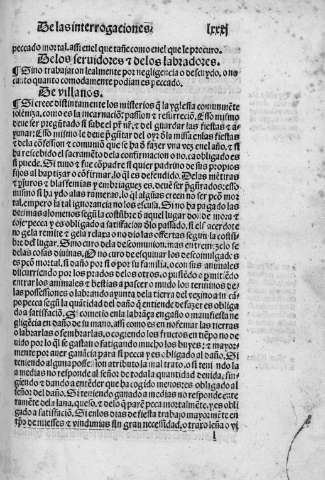 De las interrogaciones. lxxxj
peccado mortal. assi en el que tañe como en el que lo procuro.
De los seruidores ⁊ de los labradores.
¶ Si no trabajaron lealmente por negligencia o descuydo, o no
cato quanto comodamente podian es peccado.
De villanos.
¶ Si cree distintamente los misterios q̃ la yglesia comunmẽte
solẽniza, como es la incarnaciõ: passion ⁊ resurreciõ. Esso mismo
deue ser pregũtado si sabe el pr̃ nr̃o, ⁊ el guardar las fiestas ⁊ a
yunar: Esso mismo le deue p̃gũtar del oyr dela missa enlas fiestas
⁊ dela cõfession ⁊ comuniõ que se ha õ fazer vna vez enel año, ⁊ si
ha rescebido el sacramẽto dela confirmacion o no, ca obligado es
si puede. Si nino ⁊ fue cõpadre si quier padrino de sus propios
fijos al baptizar o cõfirmar, lo q̃l es defendido. Delas mẽtiras
⁊ p̃juros ⁊ blasfemias y embriagues es. deue ser p̃gũtado: esso
mismo si ha ydo a las rameras, lo q̃l algũas creen no ser peccõ mor
tal, empero la tal ignorancia no los escusa. Si no ha pagado las
decimas alomenos segũ la costũbre õ aquel lugar do de mora ⁊
coje pecca y es obligado a satisfacion õlo passado, si el sacerdote
no gela remite ⁊ gela relaxa o no dio las offertas segun la costũ
bre del lugar. Si no curo dela descomunion. mas entremizelo se
delas cosas diuinas. ¶ O no curo de esquiuar los descomulgads
es peccõ mortal, si daño por si o por su familia, o con sus animales
discurriendo por los prados delos otros, o pusiẽdo o p̃mitiẽdo
entrar los animales ⁊ bestias a pascer o mudo los terminos de
las possessiones o labrando ayunta dela tierra del vezino a su cã
po pecca segũ la quãtidad del daño ⁊ entiende de fazer es obliga
do a satisfaciõ. Si comerio enla labrãça engaño o manifiesta ne
gligẽcia en daño de su amo, assi como es en no femar las tierras
o labrarlas o sembrarlas, o cogiendo los fructos en tiẽpo no de
uido por lo q̃l se gastauã o fatigando mucho los buyes: ⁊ mayor
mente por auer ganãcia para si pecca y es obligado al daño. Si
teniendo alguna possession a tributo la mal trato, o si teniẽdo la
a medias no responde al señor de toda la quantidad deuida, fin-
giendo ⁊ dando a entẽder que ha cogido menos: es obligado al
señor del daño. Si teniendo ganado a medias no responde ente
ramẽte dela lana, queso. ⁊ delo q̃ pare: pecca mortalmẽte. y es obli
gado a satisfaciõ. Si enlos dias de fiesta trabajo mayormẽte en
tpõ de miesses ⁊ vindimias sin gran necessidad, o traxo leña o vi
l